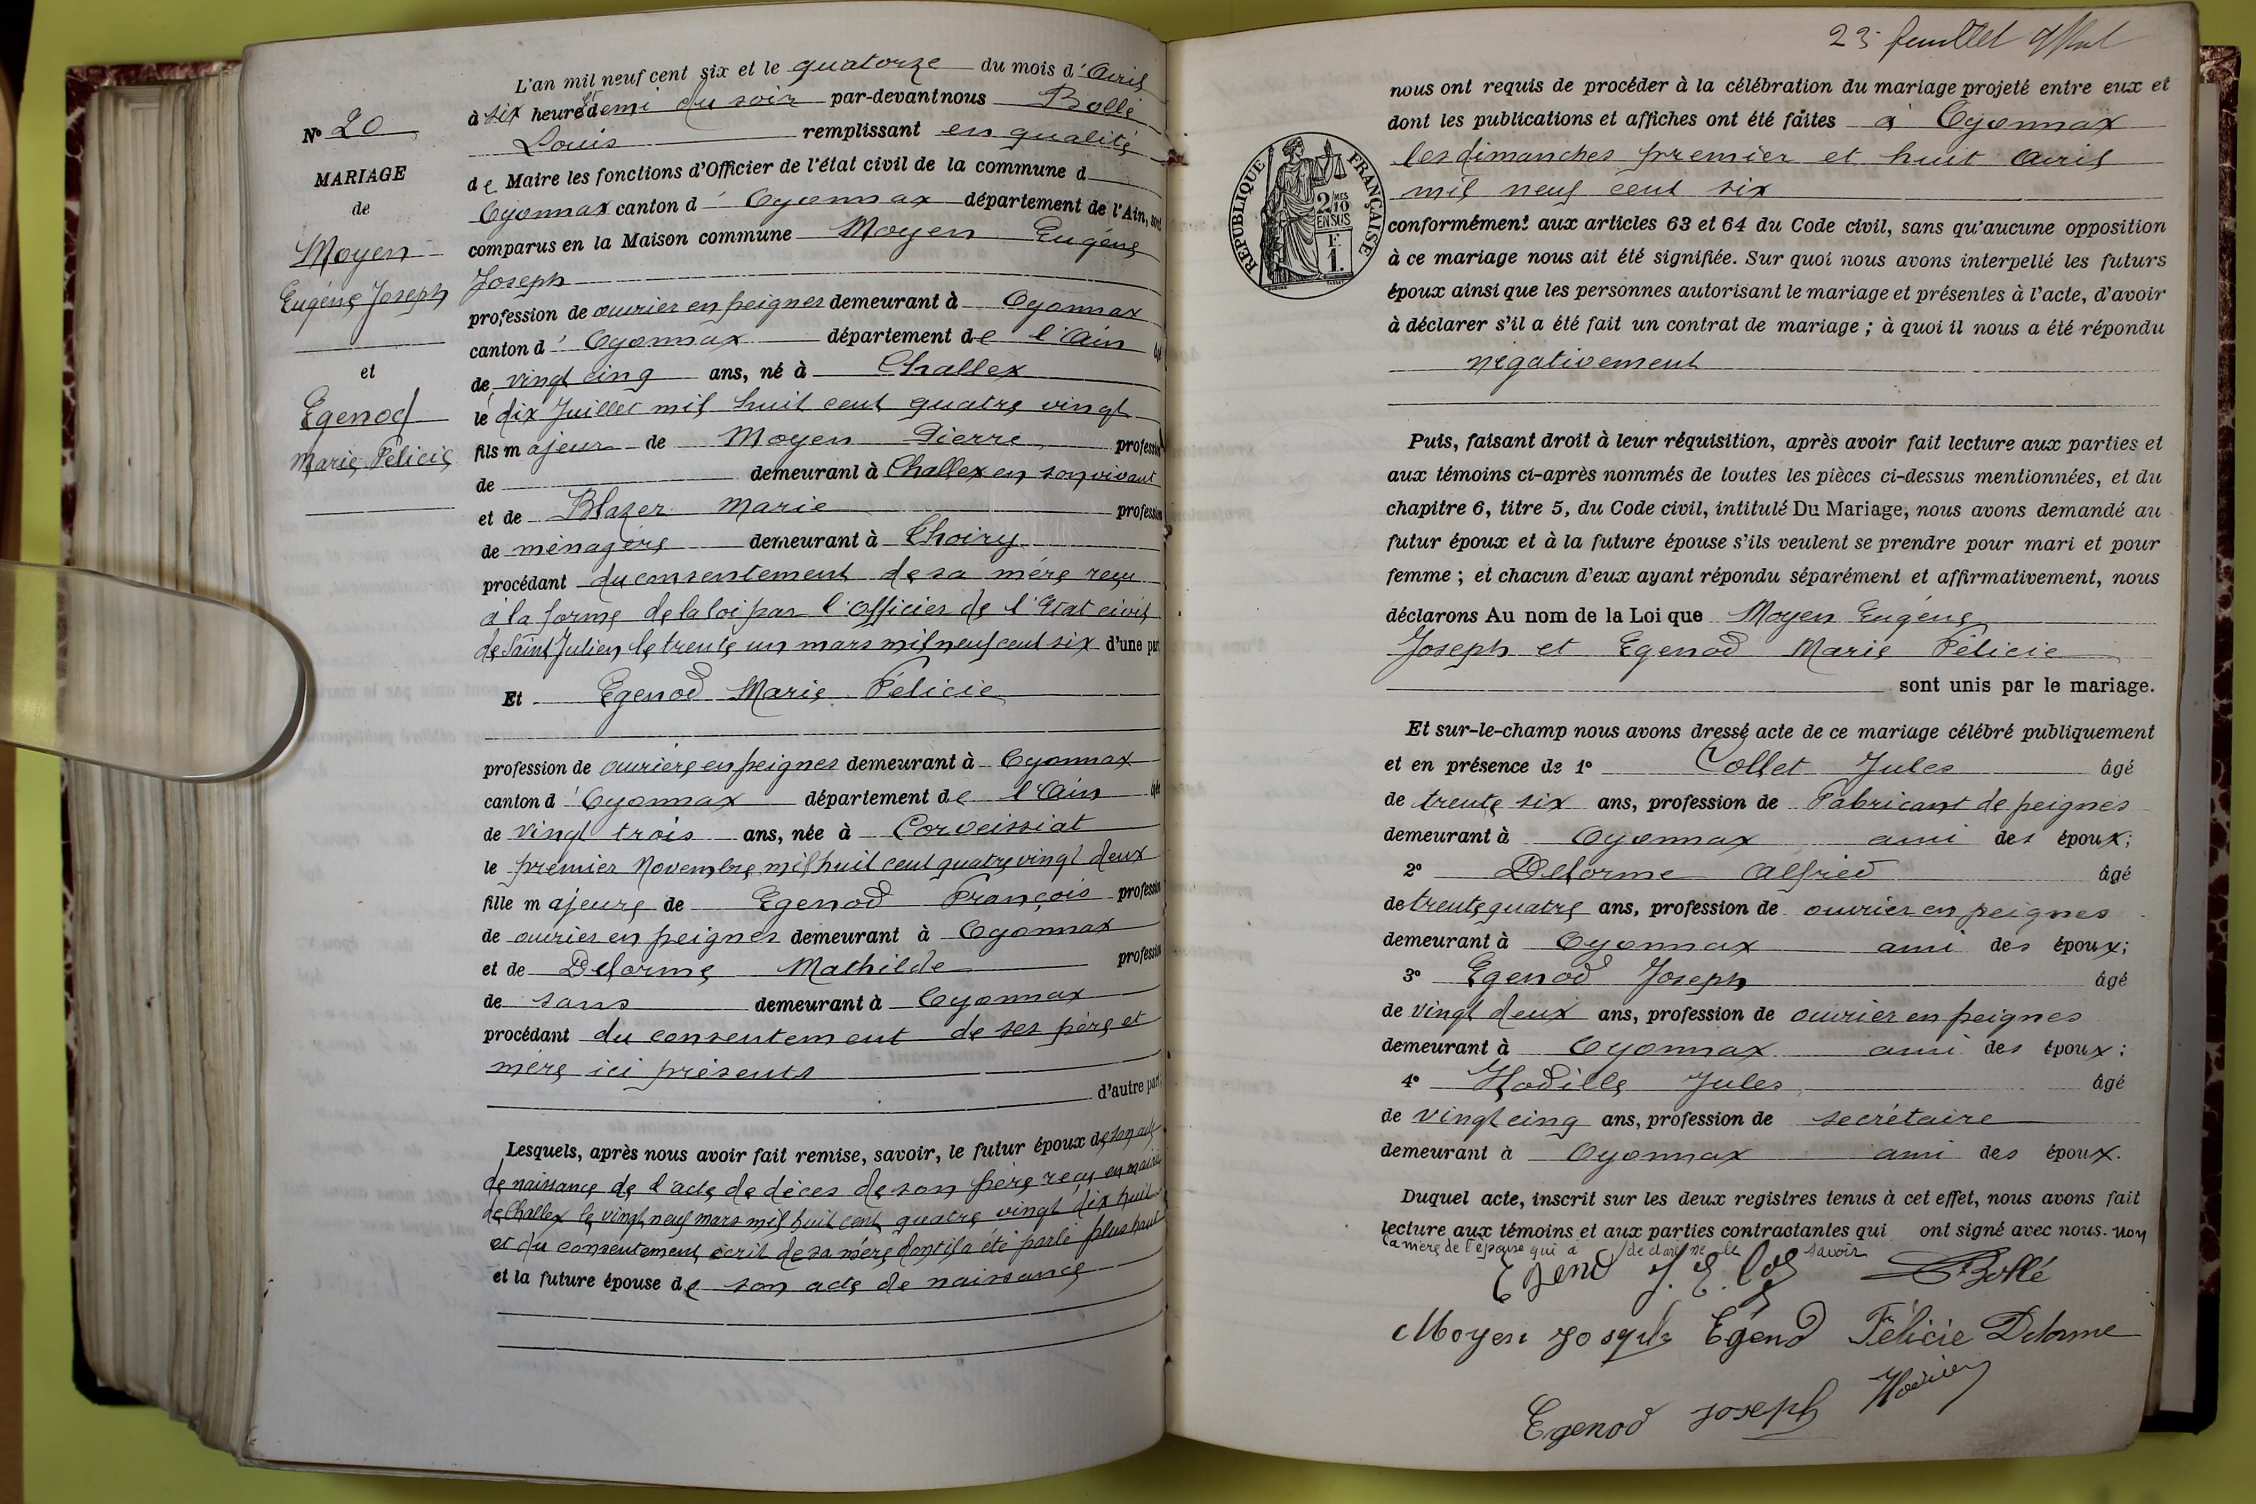 N° 20
MARIAGE
de
Moyen
Eugène Joseph
et
Egenod
Marie Félicie
L'an mil neuf cent six et le quatorze du mois d'Avril
à six heure et demi du soir par-devant nous Bollé
Louis remplissant en qualité
de Maire les fonctions d'Officier de l'état civil de la commune d
Oyonnax canton d'Oyonnax département de l'Ain, sont
comparus en la Maison commune Moyen Eugène
Joseph
profession de ouvrier en peignes demeurant à Oyonnax
canton d'Oyonnax département de l'Ain âgé
de vingt cinq ans, né à Challex
le dix Juillet mil huit cent quatre vingt
fils majeur de Moyen Pierre profession
de demeurant à Challex en son vivant
et de Blazer Marie profession
de ménagère demeurant à Thoiry
procédant du consentement de sa mère reçu
à la forme de la loi par l'Officier de l'Etat civil
de Saint Julien, le trente un mars mil neuf cent six d'une part
Et Egenod Marie Félicie
profession de ouvrière en peignes demeurant à Oyonnax
canton d'Oyonnax département de l'Ain âgée
de vingt trois ans, née à Corveissiat
le premier Novembre mil huit cent quatre vingt deux
fille majeure de Egenod François profession
de ouvrier en peignes demeurant à Oyonnax
et de Delorme Mathilde profession
de sans demeurant à Oyonnax
procédant du consentement de ses père et
mère ici présents
d'autre part
Lesquels, après nous avoir fait remise, savoir, le futur époux de son acte
de naissance de l'acte de décès de son père reçu en mairie
de Challex le vingt neuf mars mil huit cent quatre vingt dix huit
et du consentement écrit de sa mère dont il a été parlé plus haut
et la future épouse de son acte de naissance
23 feuillet
RÉPUBLIQUE FRANÇAISE
2/10 MES
EN SUS
F.
1.
nous ont requis de procéder à la célébration du mariage projeté entre eux et
dont les publications et affiches ont été faites à Oyonnax
les dimanches premier et huit Avril
mil neuf cent six
conformément aux articles 63 et 64 du Code civil, sans qu'aucune opposition
à ce mariage nous ait été signifiée. Sur quoi nous avons interpellé les futurs
époux ainsi que les personnes autorisant le mariage et présentes à l'acte, d'avoir
à déclarer s'il a été fait un contrat de mariage ; à quoi il nous a été répondu
négativement
Puis, faisant droit à leur réquisition, après avoir fait lecture aux parties et
aux témoins ci-après nommés de toutes les pièces ci-dessus mentionnées, et du
chapitre 6, titre 5, du Code civil, intitulé Du Mariage, nous avons demandé au
futur époux et à la future épouse s'ils veulent se prendre pour mari et pour
femme ; et chacun d'eux ayant répondu séparément et affirmativement, nous
déclarons Au nom de la Loi que Moyen Eugène
Joseph et Egenod Marie Félicie
sont unis par le mariage.
Et sur-le-champ nous avons dressé acte de ce mariage célébré publiquement
et en présence de 1° Collet Jules âgé
de trente six ans, profession de Fabricant de peignes
demeurant à Oyonnax ami des époux;
2° Delorme Alfred âgé
de trente quatre ans, profession de ouvrier en peignes
demeurant à Oyonnax ami des époux;
3° Egenod Joseph âgé
de vingt deux ans, profession de ouvrier en peignes
demeurant à Oyonnax ami des époux;
4° Hodille Jules âgé
de vingt cinq ans, profession de secrétaire
demeurant à Oyonnax ami des époux.
Duquel acte, inscrit sur les deux registres tenus à cet effet, nous avons fait
lecture aux témoins et aux parties contractantes qui ont signé avec nous. non
la mère de l'épouse qui a déclaré ne le savoir
Egenod Bollé
Moyen Joseph Egenod Félicie Delorme
Egenod Joseph